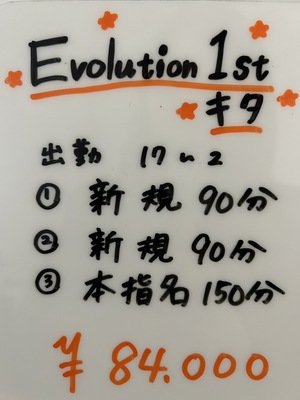 Evolution 1st
キタ
出勤 17〜2
① 新規 90分
② 新規 90分
③ 本指名 150分
¥ 84.000